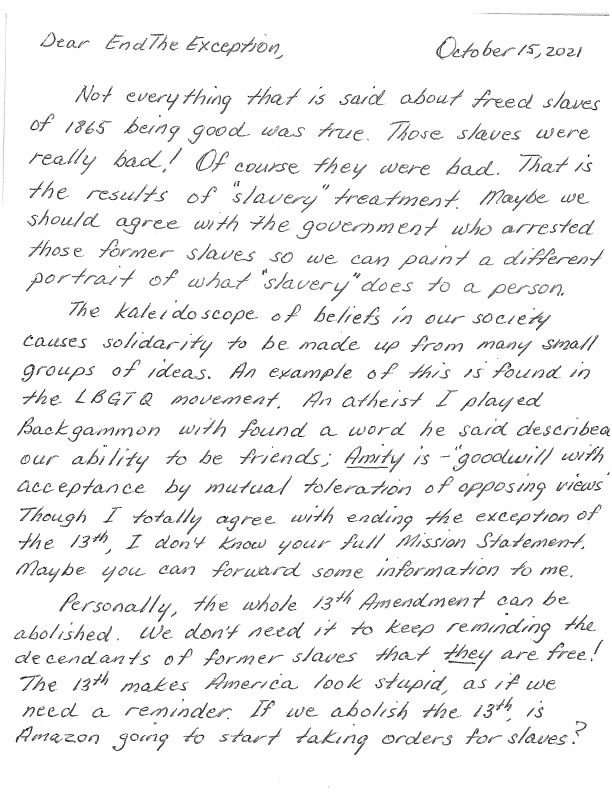 Dear EndThe Exception, October 15, 2021
Not everything that is said about freed slaves
of 1865 being good was true. Those slaves were
really bad! Of course they were bad. That is
the results of "slavery" treatment. Maybe we
should agree with the government who arrested
those former slaves so we can paint a different
portrait of what "slavery" does to a person.
The kaleidoscope of beliefs in our society
causes solidarity to be made up from many small
groups of ideas. An example of this is found in
the LBGTQ movement. An atheist I played
Backgammon with found a word he said described
our ability to be friends; Amity is - "goodwill with
acceptance by mutual toleration of opposing views"
Though I totally agree with ending the exception of
the 13th, I don't know your full Mission Statement.
Maybe you can forward some information to me.
Personally, the whole 13th Amendment can be
abolished. We don't need it to keep reminding the
decendants of former slaves that they are free!
The 13th makes America look stupid, as if we
need a reminder. If we abolish the 13th, is
Amazon going to start taking orders for slaves?